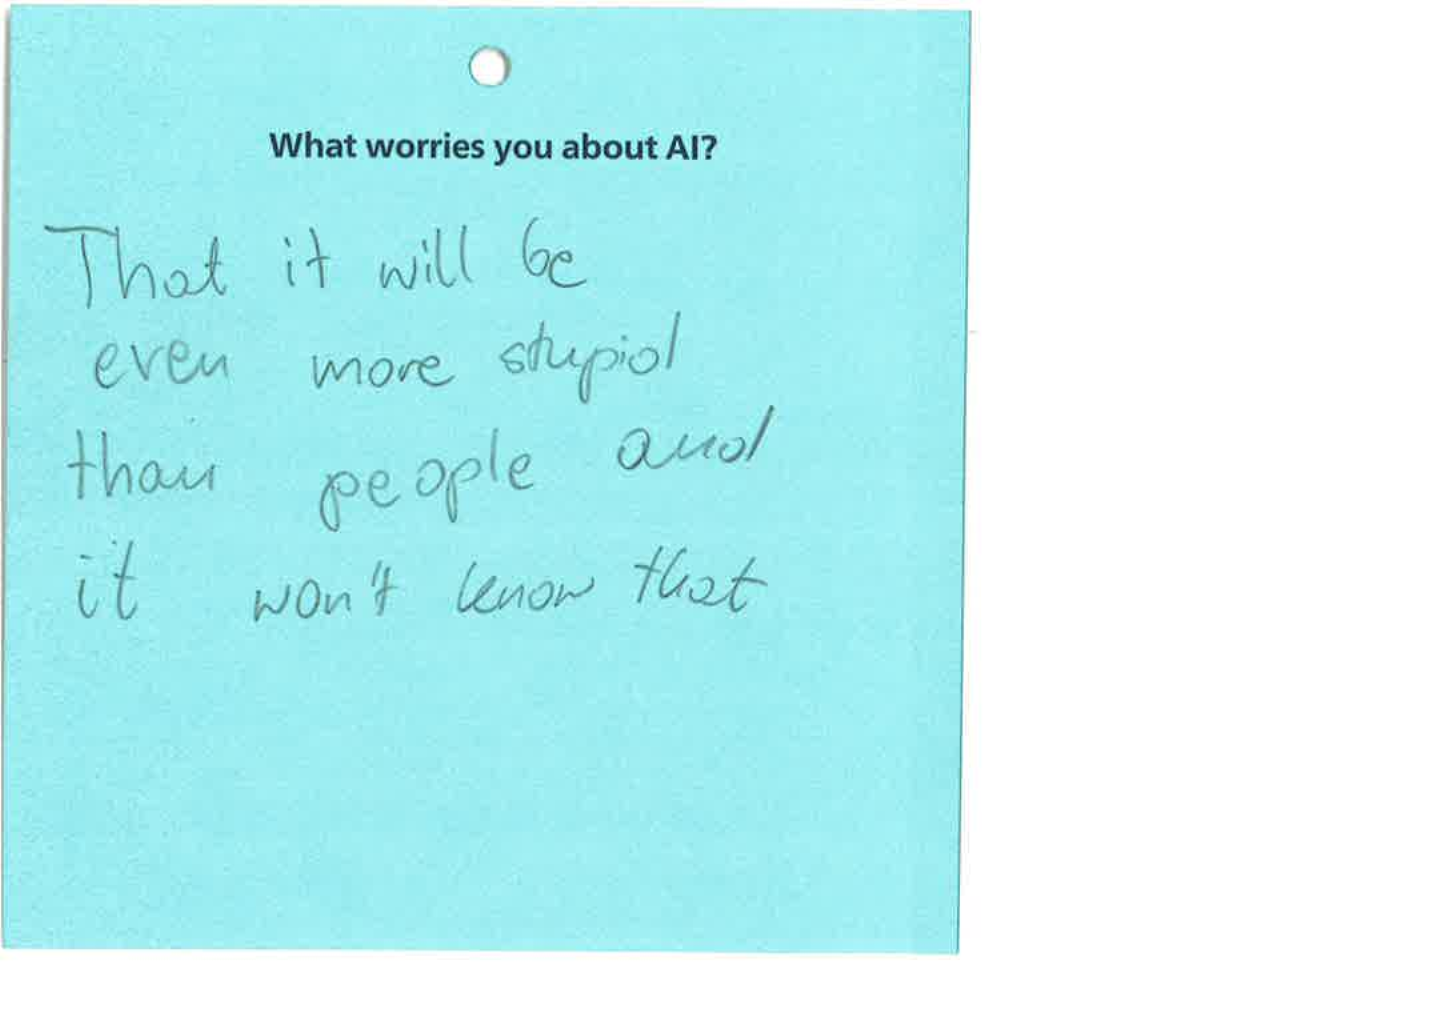 What worries you about AI?
That it will be
even more stupid
than people and
it won't know that